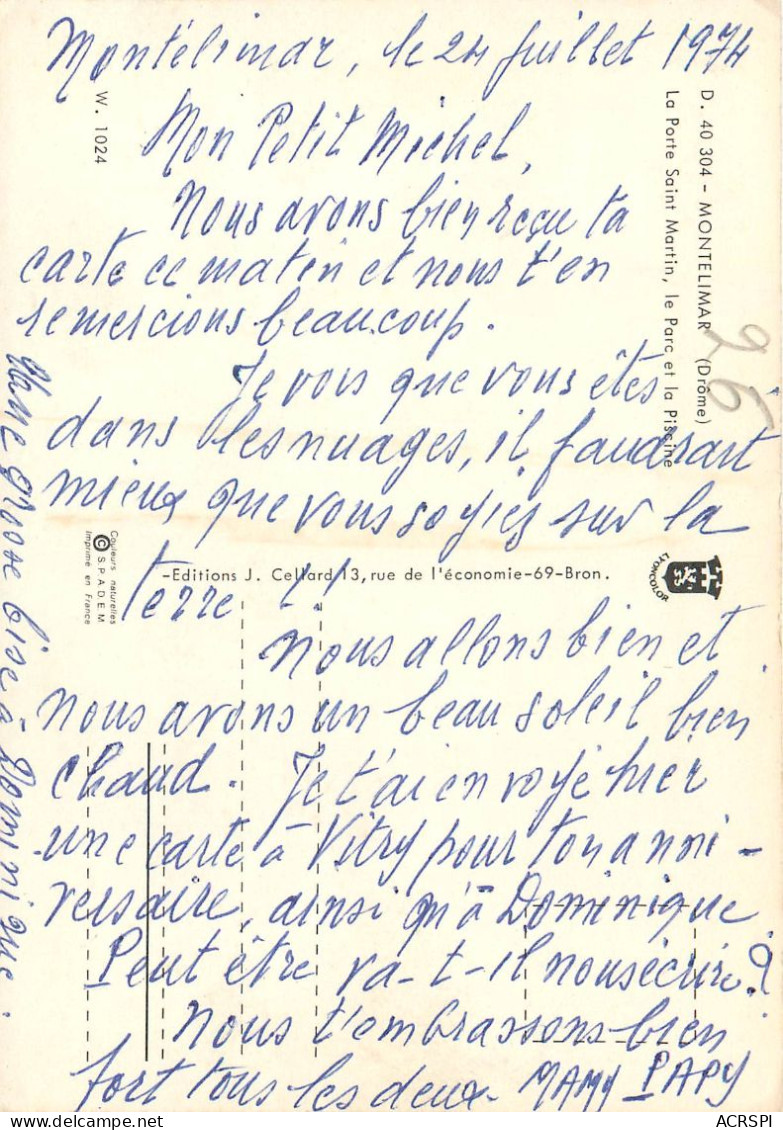 Montélimar, le 24 Juillet 1974
Mon Petit Michel,
Nous avons bien reçu ta
carte ce matin et nous t'en
remercions beaucoup.
Je vois que vous êtes
dans les nuages, il faudrait
mieux que vous soyies sur la
terre !!
Nous allons bien et
nous avons un beau soleil bien
chaud. Je t'ai envoyé hier
une carte à Vitry pour ton anni-
versaire, ainsi qu'à Dominique
Peut être va-t-il nous écrire ?
Nous t'embrassons bien
fort tous les deux. MAMY PAPY
Une grosse bise à Dominique.
W. 1024
D. 40 304 - MONTELIMAR (Drôme)
La Porte Saint Martin, le Parc et la Piscine
26
Couleurs naturelles
© S.P.A.D.E.M
Imprimé en France
-Editions J. Cellard 13, rue de l'économie-69-Bron.
LYON
COLOR
ACRSPI